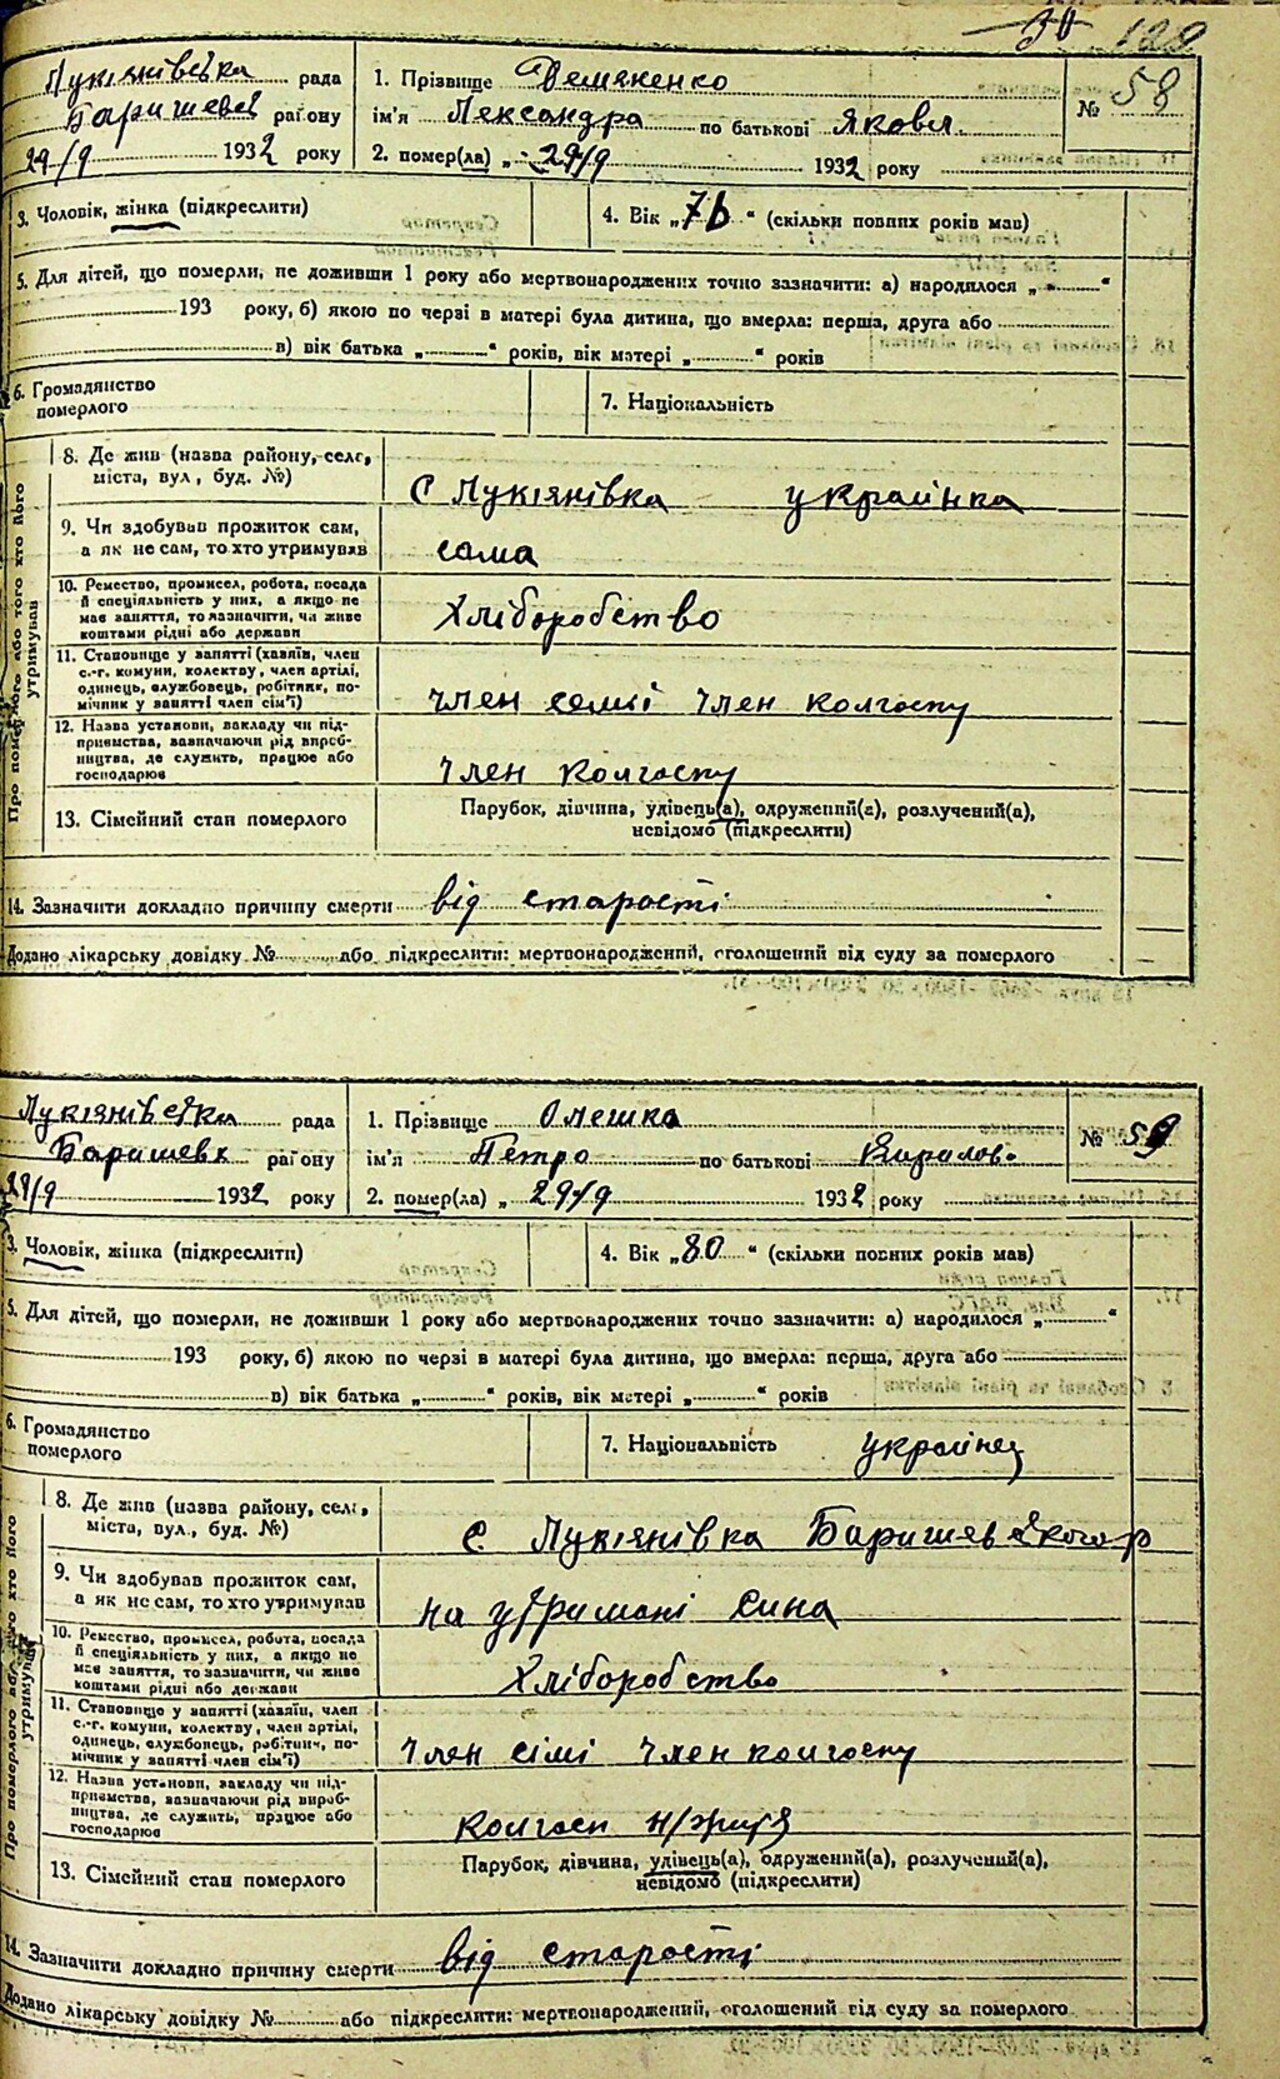 30 120
Лукіянівська рада
Баришевс району
29/9 1932 року
1. Прізвище Демяненко
ім'я Лександра по батькові Яковл.
2. помер(ла) „ 29/9 1932 року
№ 58
3. Чоловік, жінка (підкреслити)
4. Вік „76“ (скільки повних років мав)
5. Для дітей, що померли, не доживши 1 року або мертвонароджених точно зазначити: а) народилося „ “
193 року, б) якою по черзі в матері була дитина, що вмерла: перша, друга або
в) вік батька „ “ років, вік матері „ “ років
6. Громадянство
померлого
7. Національність
Про померлого або того хто його
утримував
8. Де жив (назва району, села,
міста, вул., буд. №)
С Лукіянівка українка
9. Чи здобував прожиток сам,
а як не сам, то хто утримував
сама
10. Ремество, промисел, робота, посада
й спеціяльність у них, а якщо не
має заняття, то зазначити, чи живе
коштами рідні або держави
Хліборобство
11. Становище у занятті (хазяїн, член
с.-г. комуни, колективу, член артілі,
одинець, службовець, робітник, по-
мічник у занятті член сім'ї)
член семьі член колгоспу
12. Назва установи, закладу чи під-
приємства, зазначаючи рід вироб-
ництва, де служить, працює або
господарює
член колгоспу
13. Сімейний стан померлого
Парубок, дівчина, удівець(а), одружений(а), розлучений(а),
невідомо (підкреслити)
14. Зазначити докладно причину смерти від старості
Додано лікарську довідку № або підкреслити: мертвонароджений, оголошений від суду за померлого
Лукіянівська рада
Баришевс району
29/9 1932 року
1. Прізвище Олешко
ім'я Петро по батькові Кирилов.
2. помер(ла) „ 29/9 1932 року
№ 59
3. Чоловік, жінка (підкреслити)
4. Вік „80“ (скільки повних років мав)
5. Для дітей, що померли, не доживши 1 року або мертвонароджених точно зазначити: а) народилося „ “
193 року, б) якою по черзі в матері була дитина, що вмерла: перша, друга або
в) вік батька „ “ років, вік матері „ “ років
6. Громадянство
померлого
7. Національність українец
Про померлого або того хто його
утримував
8. Де жив (назва району, села,
міста, вул., буд. №)
с. Лукіянівка Баришевського р
9. Чи здобував прожиток сам,
а як не сам, то хто утримував
на утримані сина
10. Ремество, промисел, робота, посада
й спеціяльність у них, а якщо не
має заняття, то зазначити, чи живе
коштами рідні або держави
Хліборобство
11. Становище у занятті (хазяїн, член
с.-г. комуни, колективу, член артілі,
одинець, службовець, робітник, по-
мічник у занятті член сім'ї)
член сімі член колгоспу
12. Назва установи, закладу чи під-
приємства, зазначаючи рід вироб-
ництва, де служить, працює або
господарює
колгосп
13. Сімейний стан померлого
Парубок, дівчина, удівець(а), одружений(а), розлучений(а),
невідомо (підкреслити)
14. Зазначити докладно причину смерти від старості
Додано лікарську довідку № або підкреслити: мертвонароджений, оголошений від суду за померлого